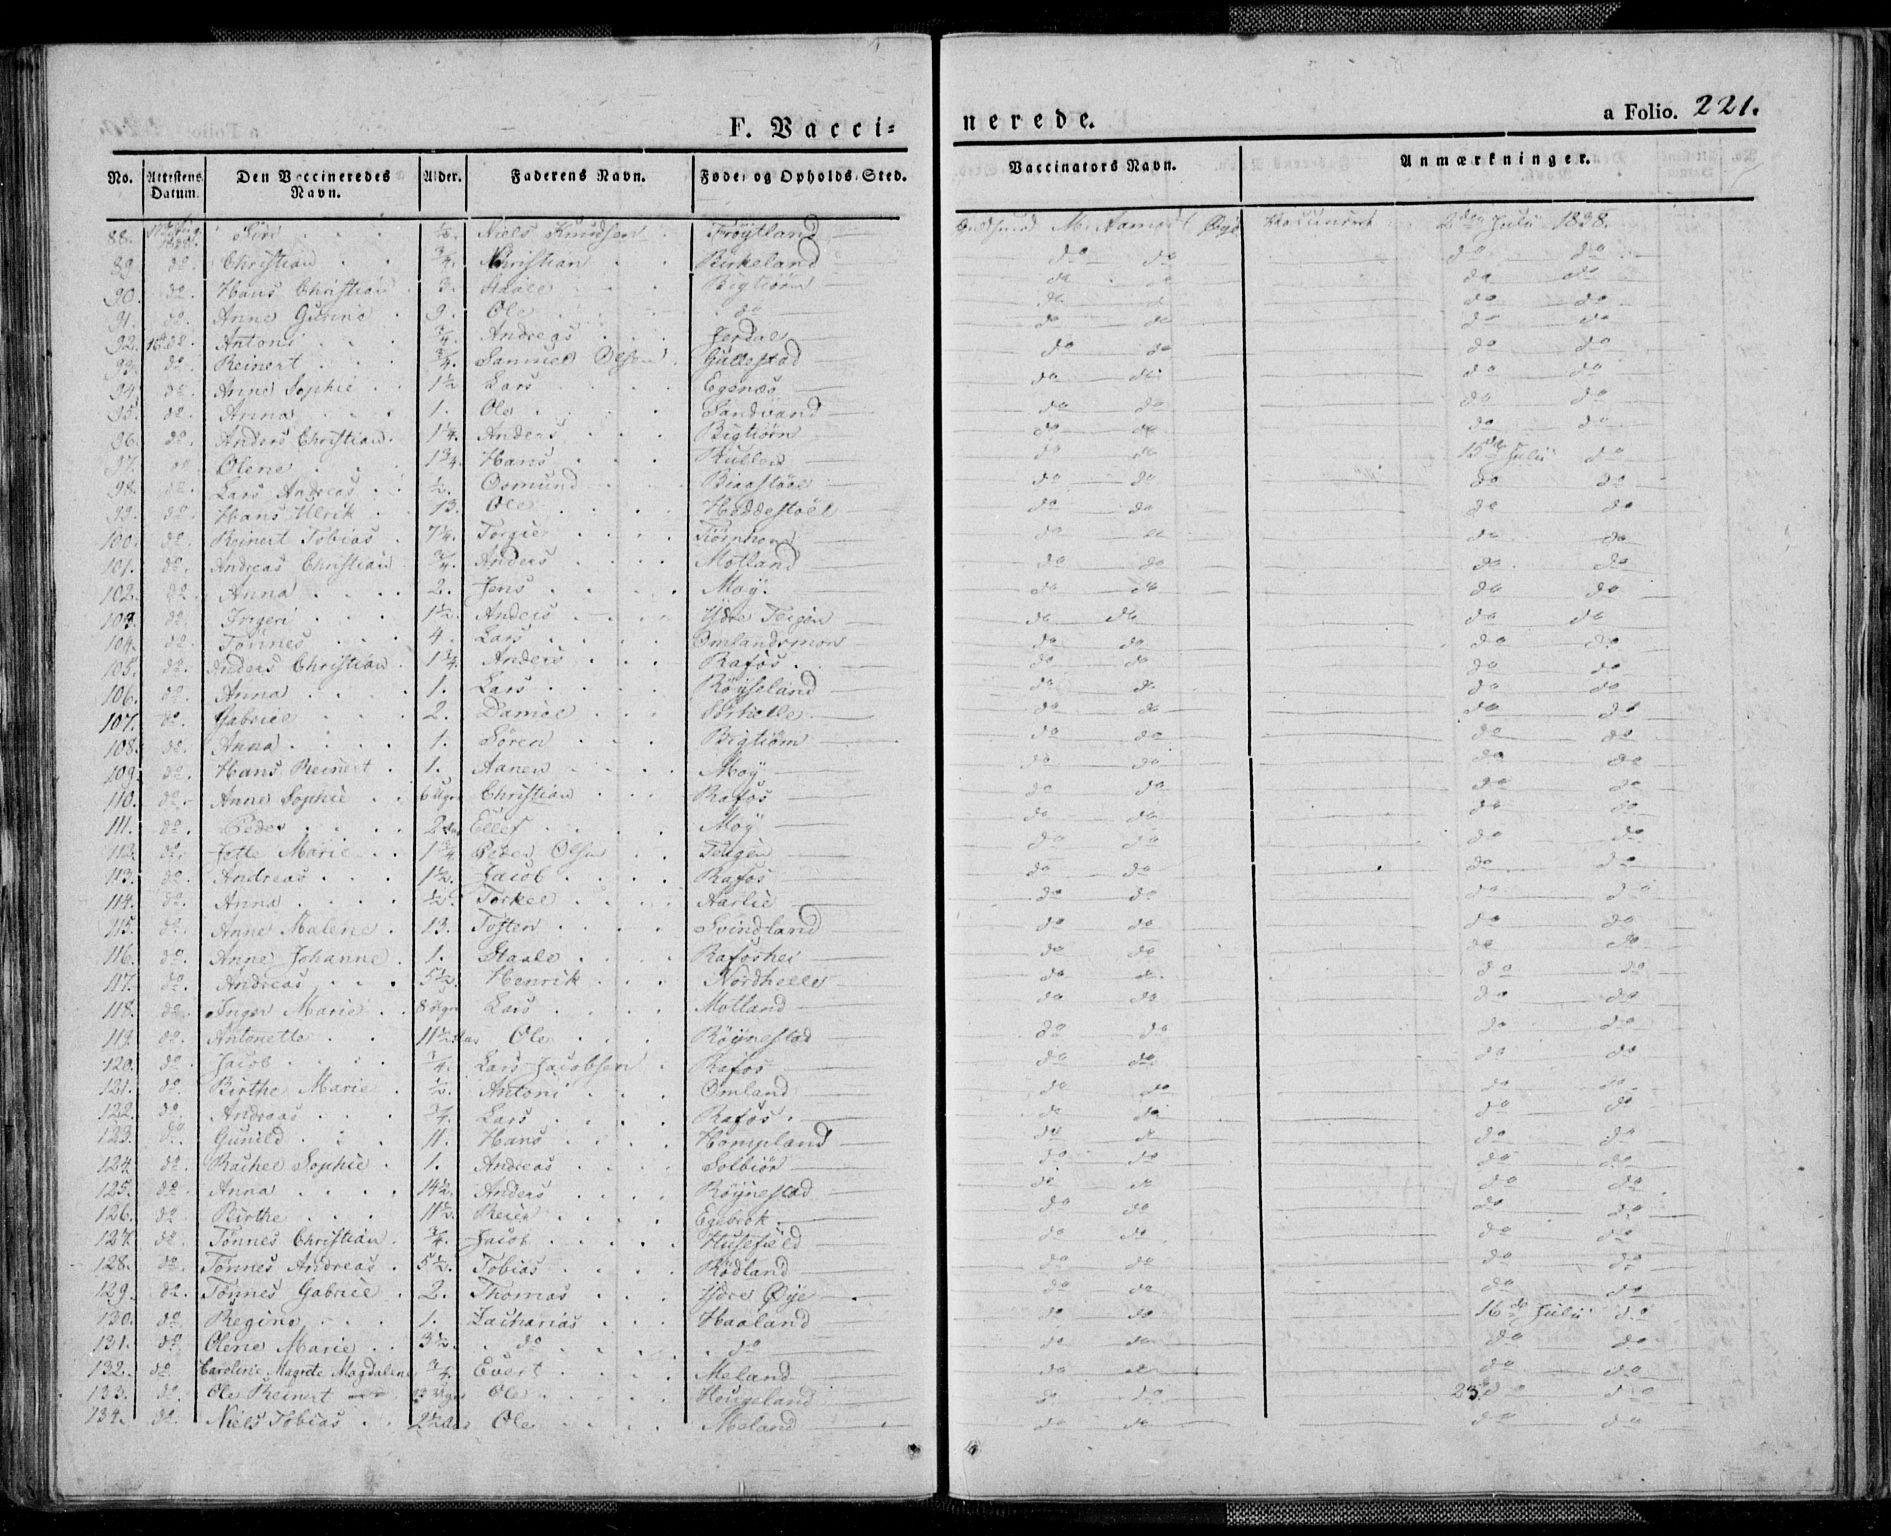 F. Vacci=
nerede.
a Folio. 221.
No. | Attestens Datum. | Den Vaccineredes Navn. | Alder. | Faderens Navn. | Føde- og Opholds-Sted. | Vaccinators Navn. | Anmærkninger.
88. | Siri | 1/2. | Niels Knudsen | Frøytland | M. Aamodt Øye | Vaccineret 2den Julii 1838.
89. | do. | Christian | 3/4. | Christian | Birkeland | do do | do do
90. | do. | Hans Christian | Staale | Bigtiørn | do do | do do
91. | do. | Anne Gurine | 9. | Ole | do | do do | do do
92. | 16 do. | Antoni | 3/4. | Andreas | Jerdal | do do | do do
93. | do. | Reinert | 3/4. | Samuel Olsen | Gullestad | do do | do do
94. | do. | Anne Sophie | 1 1/2 | Lars | Egenæs | do do | do do
95. | do. | Anna | 1. | Ole | Sandvand | do do | do do
96. | do. | Anders Christian | 1 1/4. | Anders | Bigtiørn | do do | do do
97. | do. | Olene | 1 3/4. | Hans | do do | 15de Julii do
98. | do. | Lars Andreas | 1/2. | Osmund | do do | do do
99. | do. | Hans Ulrik | 13. | Ole | Heddestøel | do do | do do
100. | do. | Reinert Tobias | 7 1/4. | Torgier | Tiørnhom | do do | do do
101. | do. | Andreas Christian | 3/4. | Anders | Motland | do do | do do
102. | do. | Anna | 2. | Jens | Moy. | do do | do do
103. | do. | Ingeri | 1 1/2. | Anders | Ydre Teigen | do do | do do
104. | do. | Tønnes | 4. | Lars | Omlandsmon | do do | do do
105. | do. | Anders Christian | 1 3/4. | Anders | Rafos | do do | do do
106. | do. | Anna | 1. | Lars | Røyseland | do do | do do
107. | do. | Gabriel | 2. | Daniel | Sørhelle | do do | do do
108. | do. | Anna | 1. | Søren | Bigtiørn | do do | do do
109. | do. | Hans Reinert | 1. | Aanen | Moy | do do | do do
110. | do. | Anne Sophie | 6 Ugr | Christian | Rafos | do do | do do
111. | do. | Peder | 2 | Ellef | Moy | do do | do do
112. | do. | Jette Marie | 1 3/4 | Peder Olsen | Teigen | do do | do do
113. | do. | Andreas | 1 1/2. | Jacob | Rafos | do do | do do
114. | do. | Anna | 1/2. | Torkel | Aarlie | do do | do do
115. | do. | Anne Malene | 13. | Tosten | Svindland | do do | do do
116. | do. | Anne Johanne | 1. | Staale | Rafoshei | do do | do do
117. | do. | Andreas | 5 1/2. | Henrik | Nordhelle | do do | do do
118. | do. | Inger Marie | 8 Ugr | Lars | Motland | do do | do do
119. | do. | Antonette | 11 1/2 Aar | Ole | Røynestad | do do | do do
120. | do. | Jacob | 1/4. | Lars Jacobsen | Rafos | do do | do do
121. | do | Birthe Marie | 1/2. | Antoni | Omland | do do | do do
122. | do. | Andreas | 3/4. | Lars | Rafos. | do do | do do
123. | do. | Gunild | 11. | Hans | Hompland | do do | do do
124. | do. | Rachel Sophie | 1. | Andreas | Solbiør | do do | do do
125. | do. | Anna | 14 1/2. | Anders | Røynestad | do do | do do
126. | do. | Birthe | 11 1/2. | Reier | Egebrok | do do | do do
127. | do. | Tønnes Christian | 3/4. | Jacob | Husefield | do do | do do
128. | do. | Tønnes Andreas | 5 1/2. | Tobias | Rødland | do do | do do
129. | do. | Tønnes Gabriel | 2. | Thomas | Ydre Øye | do do | do do
130. | do. | Regine | 1. | Zacharias | Haaland | do do | 16de Julii do
131. | do. | Olene Marie | 3 1/2. | do | do | do do | do do
132. | do. | Caroline Magrete Magdalene | 3/4. | Evert | Meland | do do | do do
133. | do. | Ole Reinert | 13 Ugr | Ole | Heugeland | do do | 23de do do
134. | do. | Niels Tobias | 2 1/2 Aar | Ole | Meland | do do | do do